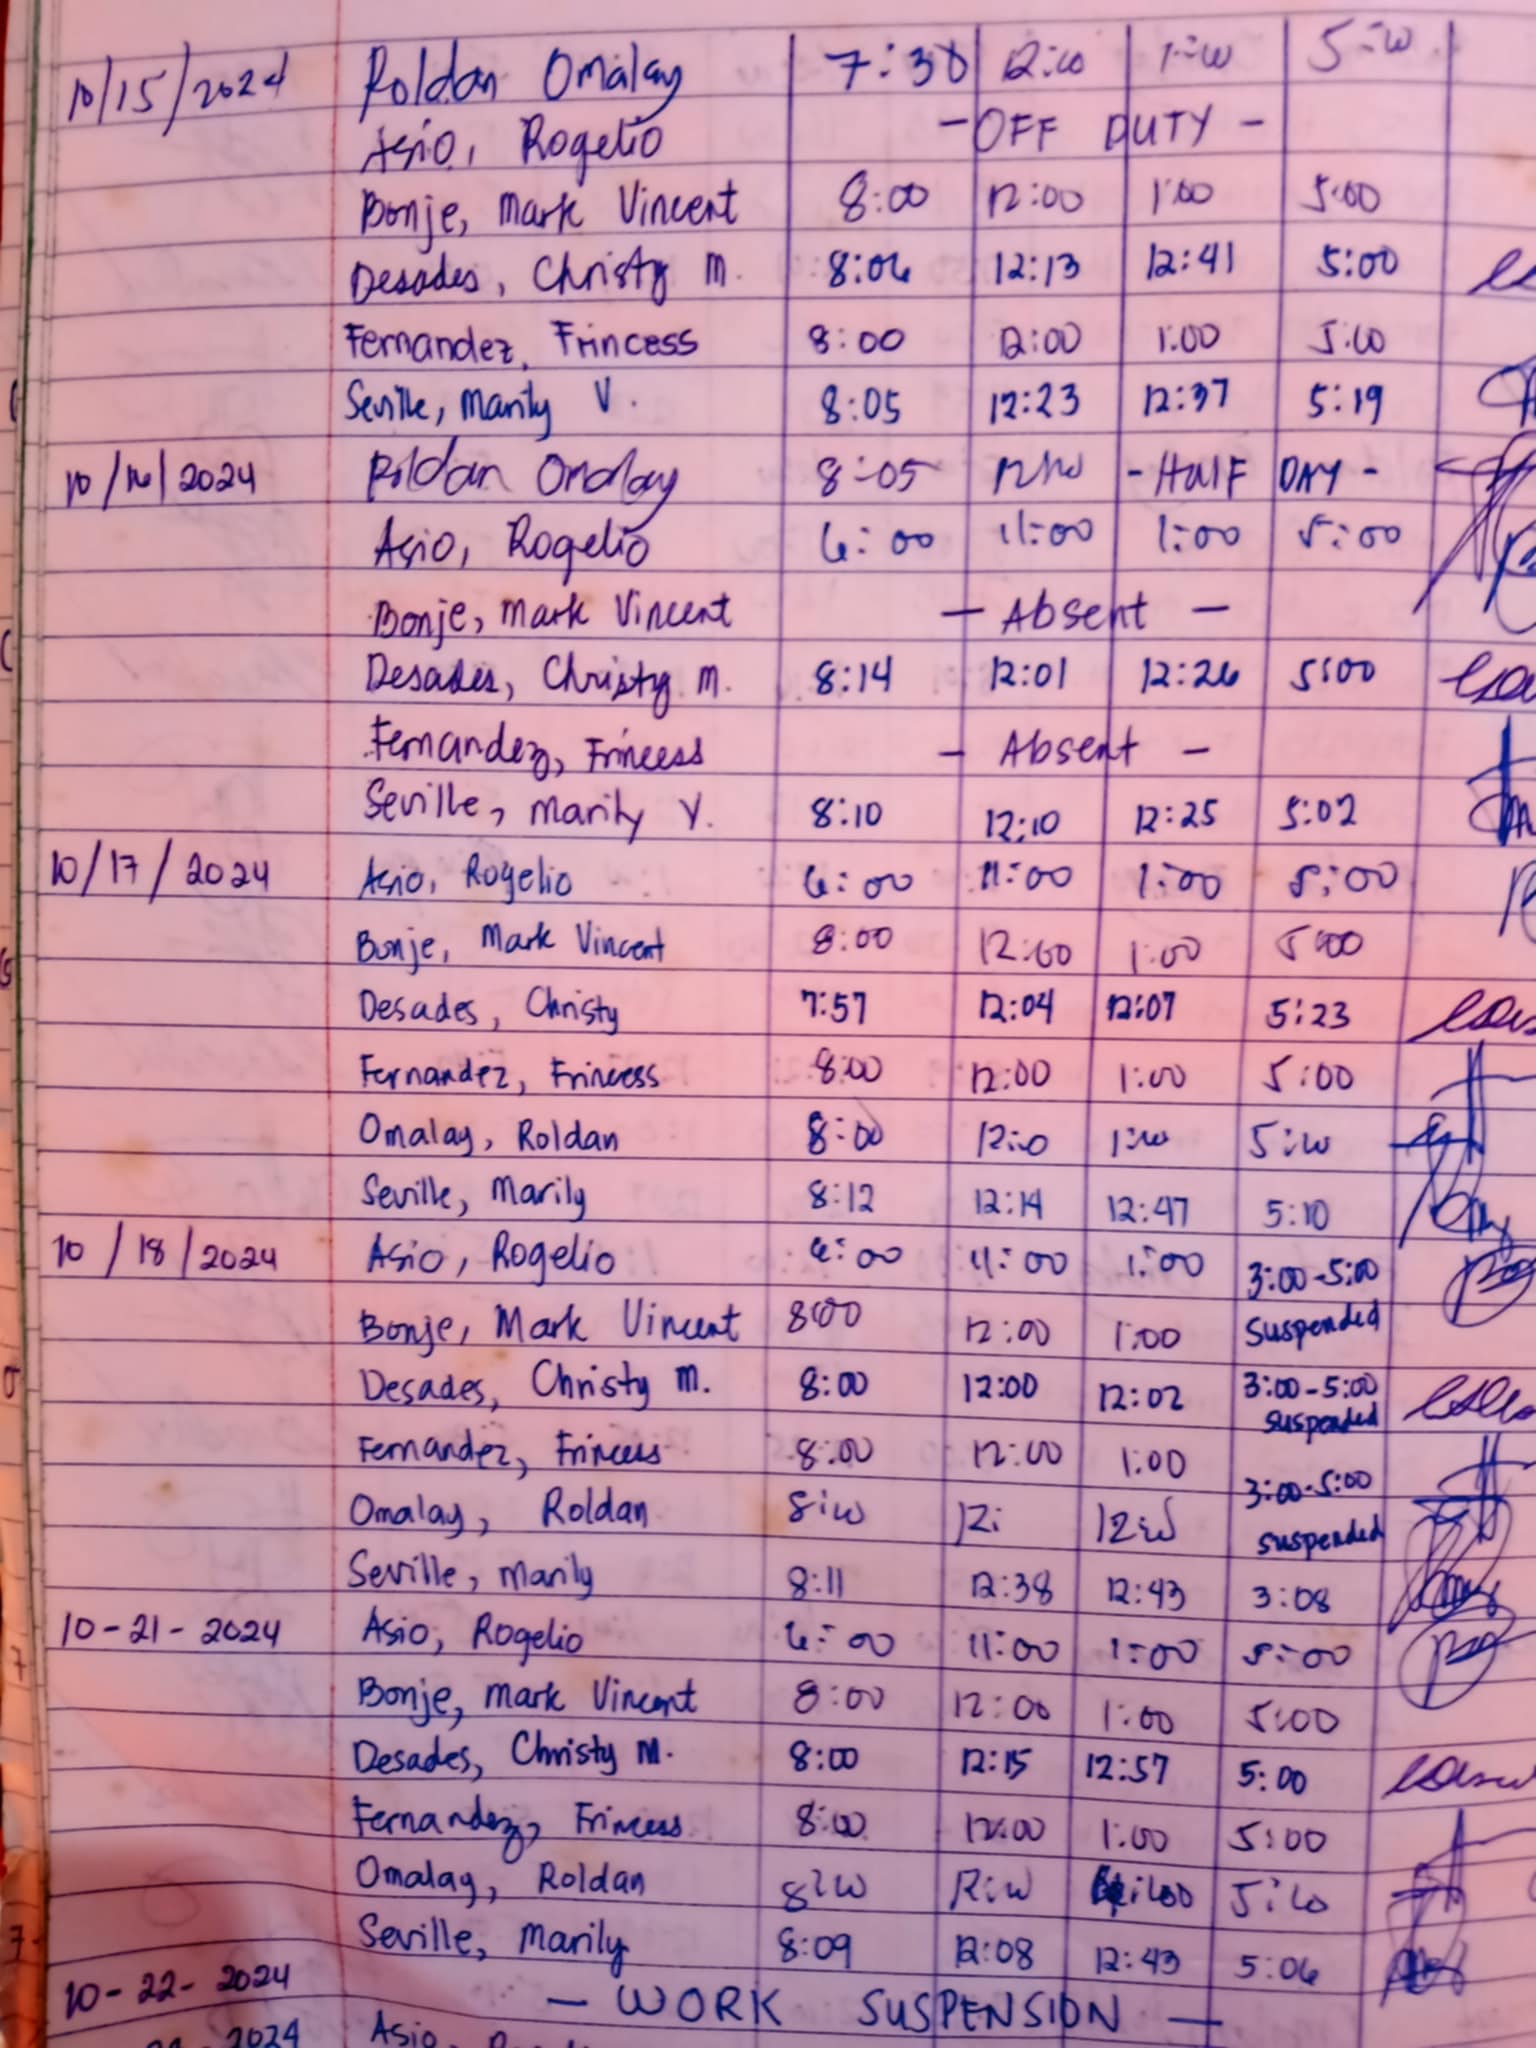 10/15/2024 Roldan Omalay 7:30 12:00 1:00 5:00
Asio, Rogelio - OFF DUTY -
Bonje, Mark Vincent 8:00 12:00 1:00 5:00
Desades, Christy M. 8:06 12:13 12:41 5:00
Fernandez, Frincess 8:00 12:00 1:00 5:00
Seville, Marily V. 8:05 12:23 12:37 5:19
10/16/2024 Roldan Omalay 8:05 12:00 - HALF DAY -
Asio, Rogelio 6:00 11:00 1:00 5:00
Bonje, Mark Vincent - Absent -
Desades, Christy M. 8:14 12:01 12:26 5:00
Fernandez, Frincess - Absent -
Seville, Marily V. 8:10 12:10 12:25 5:02
10/17/2024 Asio, Rogelio 6:00 11:00 1:00 5:00
Bonje, Mark Vincent 8:00 12:00 1:00 5:00
Desades, Christy 7:57 12:04 12:07 5:23
Fernandez, Frincess 8:00 12:00 1:00 5:00
Omalay, Roldan 8:00 12:00 1:00 5:00
Seville, Marily 8:12 12:14 12:47 5:10
10/18/2024 Asio, Rogelio 6:00 11:00 1:00 3:00-5:00
Bonje, Mark Vincent 8:00 12:00 1:00 suspended
Desades, Christy M. 8:00 12:00 12:02 3:00-5:00
suspended
Fernandez, Frincess 8:00 12:00 1:00 3:00-5:00
Omalay, Roldan 8:00 12: 12:00 suspended
Seville, Marily 8:11 12:38 12:43 3:08
10-21-2024 Asio, Rogelio 6:00 11:00 1:00 5:00
Bonje, Mark Vincent 8:00 12:00 1:00 5:00
Desades, Christy M. 8:00 12:15 12:57 5:00
Fernandez, Frincess 8:00 12:00 1:00 5:00
Omalay, Roldan 8:00 12:00 5:00
Seville, Marily 8:09 12:08 12:43 5:06
10-22-2024 - WORK SUSPENSION -
2024 Asio,